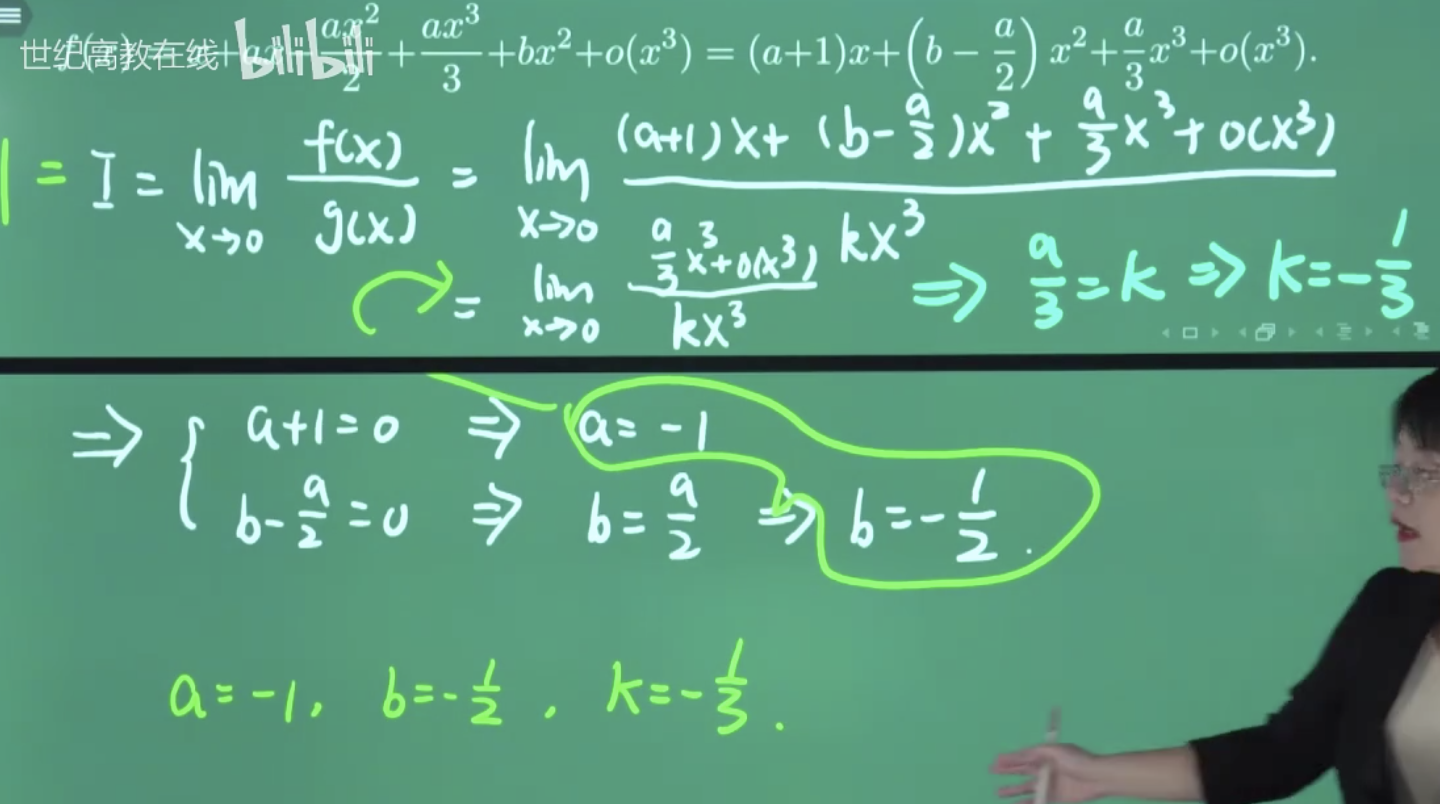 世纪高教在线 bilibili
f(x) = x + ax − \frac{ax^2}{2} + \frac{ax^3}{3} + bx^2 + o(x^3) = (a+1)x + \left(b − \frac{a}{2}\right)x^2 + \frac{a}{3}x^3 + o(x^3).
1 = I = \lim_{x→0} \frac{f(x)}{g(x)} = \lim_{x→0} \frac{(a+1)x + (b−\frac{a}{2})x^2 + \frac{a}{3}x^3 + o(x^3)}{kx^3}
= \lim_{x→0} \frac{\frac{a}{3}x^3 + o(x^3)}{kx^3} ⇒ \frac{a}{3} = k ⇒ k = −\frac{1}{3}
⇒ { a+1=0 ⇒ a=−1
b−\frac{a}{2}=0 ⇒ b=\frac{a}{2} ⇒ b=−\frac{1}{2}.
a=−1, b=−\frac{1}{2}, k=−\frac{1}{3}.